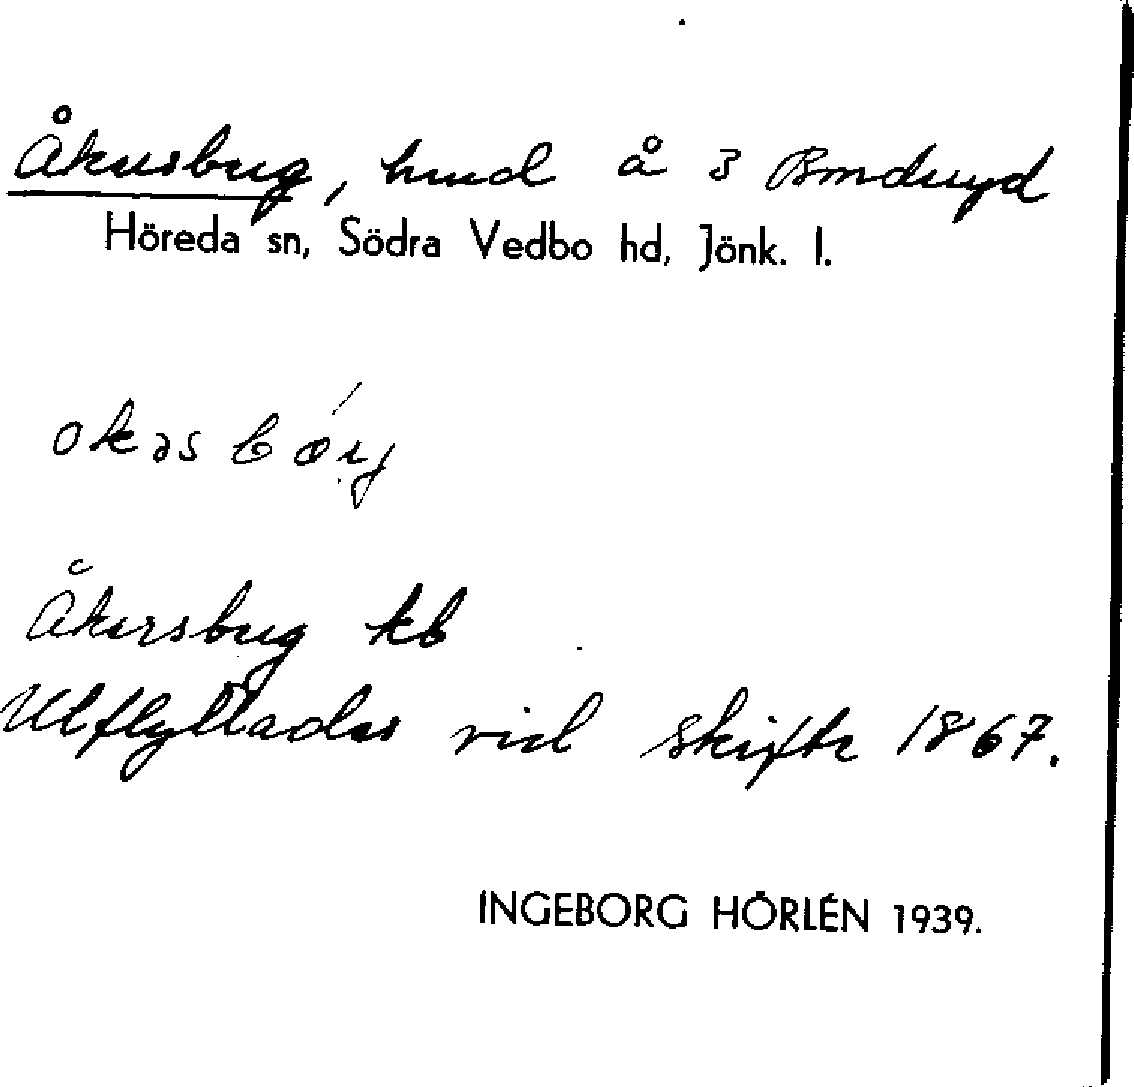 Åkersberg, hmd å 3 Bondryd
Höreda sn, Södra Vedbo hd, Jönk. l.
okəs bœrj
Åkersberg kb
Utflyttades vid skifte 1867.
INGEBORG HÖRLÉN 1939.